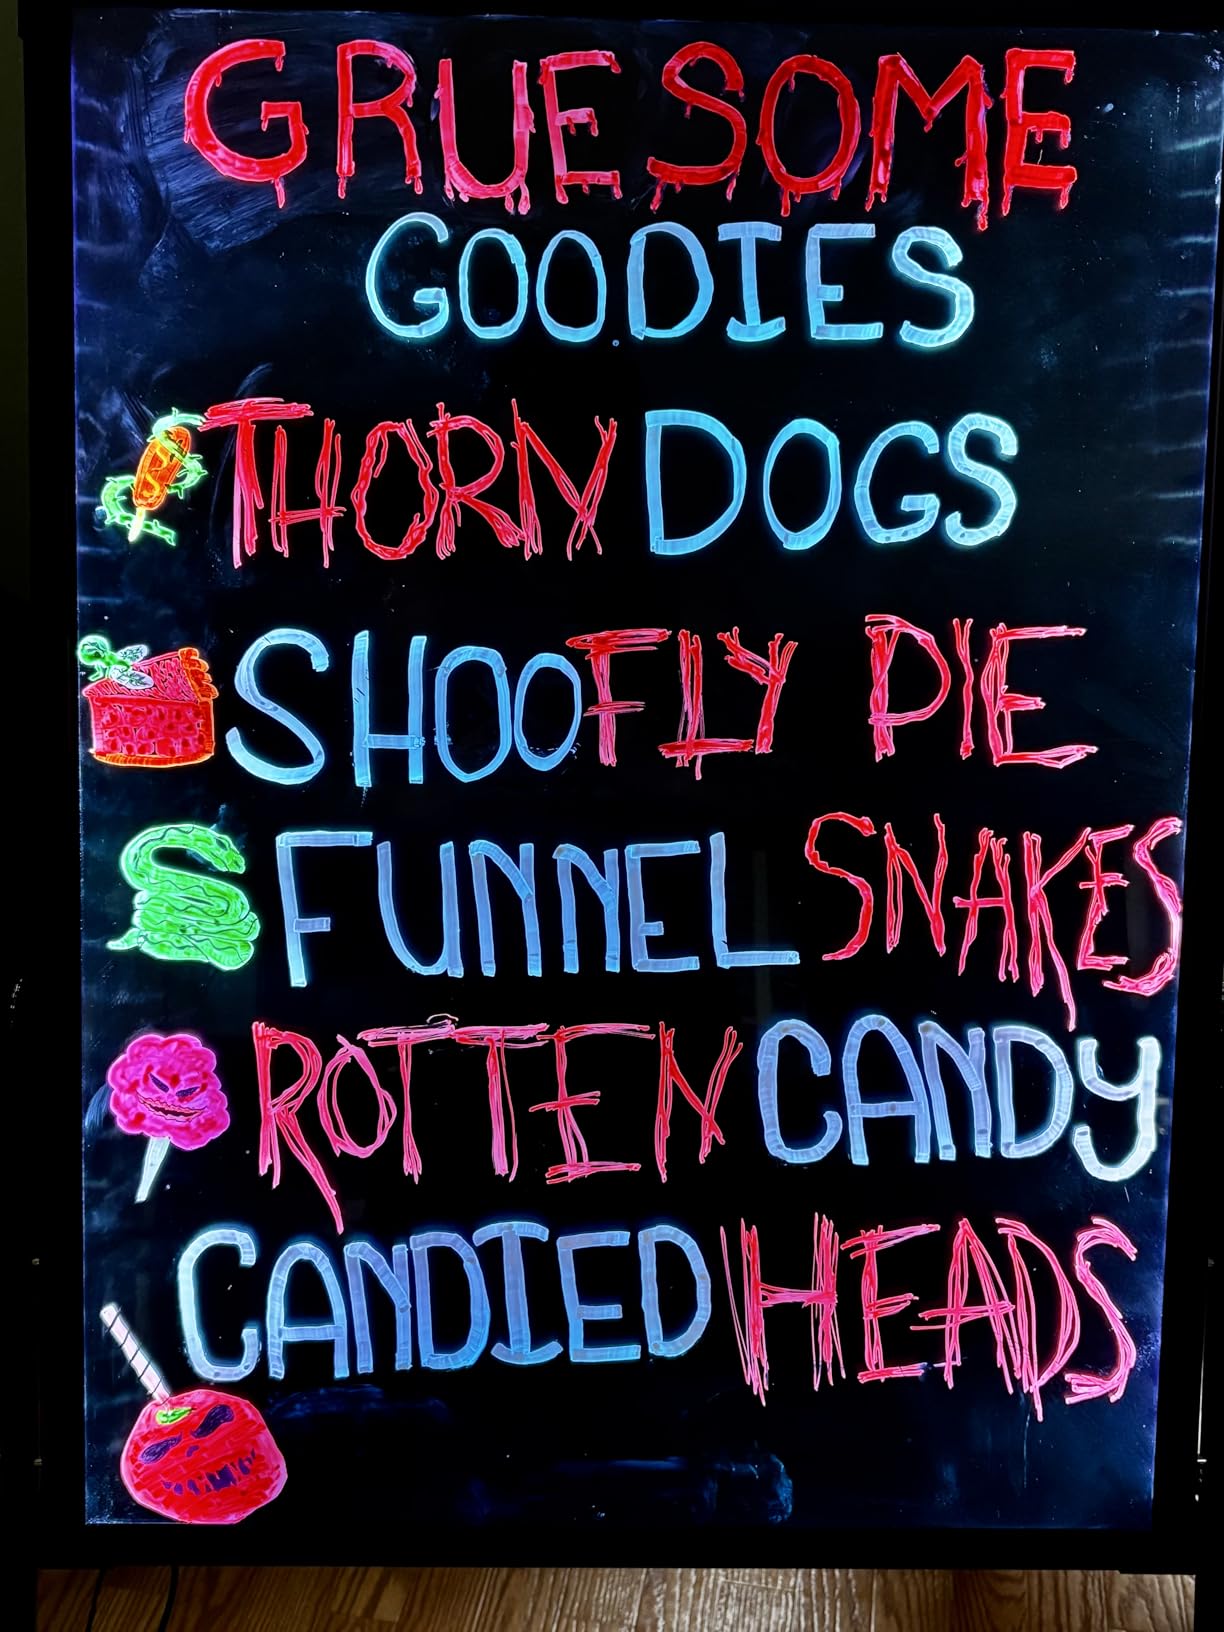 GRUESOME
GOODIES
THORN DOGS
SHOOFLY PIE
FUNNEL SNAKES
ROTTEN CANDY
CANDIED HEADS